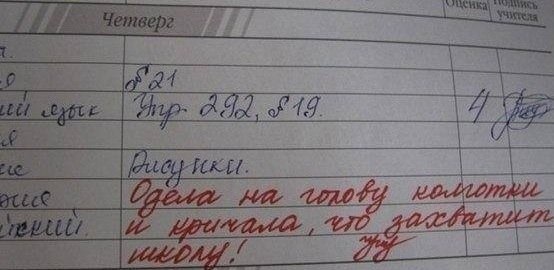 Четверг
Оценка
Подпись учителя
§ 21
ий язык Упр 292, § 19. 4
Рисунки.
Одела на голову колготки
и кричала, что захватит
школу!